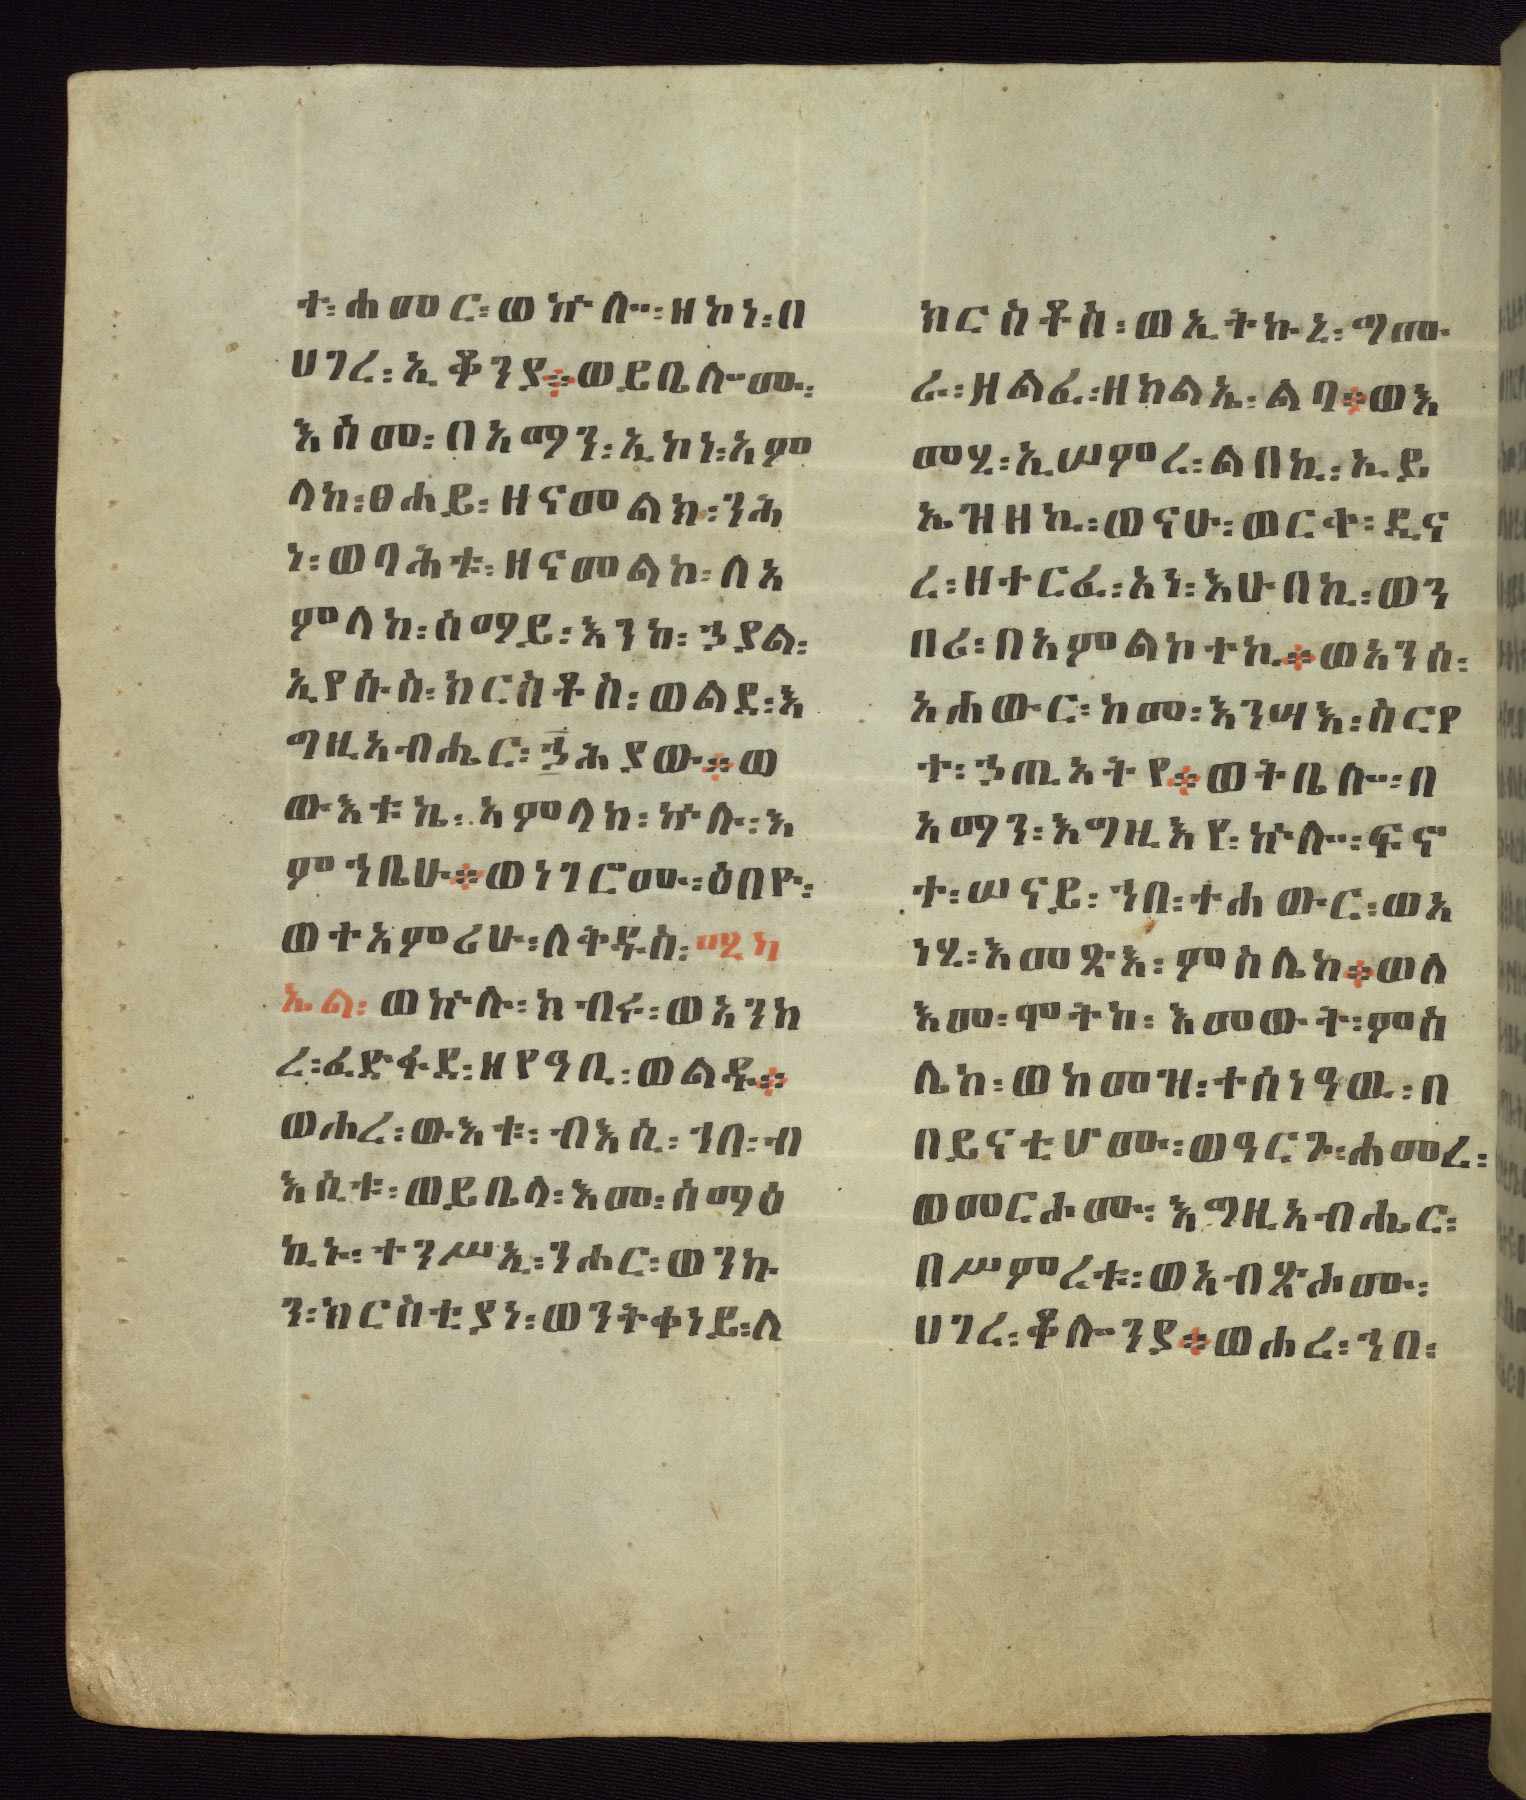 ተ፡ሐመር፡ወኵሎ፡ዘከነ፡በ
ሀገረ፡ኢቆንያ፨ወይቤሎሙ፡
እስመ፡በአማን፡ኢከነ፡አም
ላከ፡ፀሐይ፡ዘናመልክ፡ንሕ
ነ፡ወባሕቱ፡ዘናመልከ፡ለአ
ምላከ፡ሰማይ፡እንከ፡ኃያል፡
ኢየሱስ፡ክርስቶስ፡ወልደ፡እ
ግዚአብሔር፡ኃሕያው፨ወ
ውእቱኬ፡አምላከ፡ኵሉ፡እ
ምኀቤሁ፨ወነገሮሙ፡ዕበዮ፡
ወተአምሪሁ፡ለቅዱስ፡ሚካ
ኤል፡ወኵሉ፡ክብሩ፡ወአንከ
ረ፡ፈድፋደ፡ዘየዓቢ፡ወልዱ፨
ወሐረ፡ውእቱ፡ብእሲ፡ኀበ፡ብ
እሲቱ፡ወይቤላ፡እመ፡ሰማዕ
ኪኑ፡ተንሥኢ፡ንሐር፡ወንኩ
ን፡ክርስቲያነ፡ወንትቀነይ፡ለ
ክርስቶስ፡ወኢትኩኒ፡ማሙ
ራ፡ዘልፈ፡ዘከልኤ፡ልባ፨ወእ
መሂ፡ኢሠምረ፡ልበኪ፡ኢይ
ኤዝዘኪ፡ወናሁ፡ወርቀ፡ዲና
ረ፡ዘተርፈ፡አነ፡እሁበኪ፡ወን
በሪ፡በአምልኮተኪ፨ወአንሰ፡
አሐውር፡ከመ፡እንሣእ፡ስርየ
ተ፡ኃጢአትየ፨ወትቤሎ፡በ
አማን፡እግዚእየ፡ኵሎ፡ፍኖ
ተ፡ሠናይ፡ኀበ፡ተሐውር፡ወአ
ነሂ፡እመጽእ፡ምስሌከ፨ወለ
እመ፡ሞትከ፡እመውት፡ምስ
ሌከ፡ወከመዝ፡ተሰነዓዉ፡በ
በይናቲሆሙ፡ወዓርጉ፡ሐመረ፡
ወመርሖሙ፡እግዚአብሔር፡
በሥምረቱ፡ወአብጽሖሙ፡
ሀገረ፡ቆሎንያ፨ወሐረ፡ኀበ፡